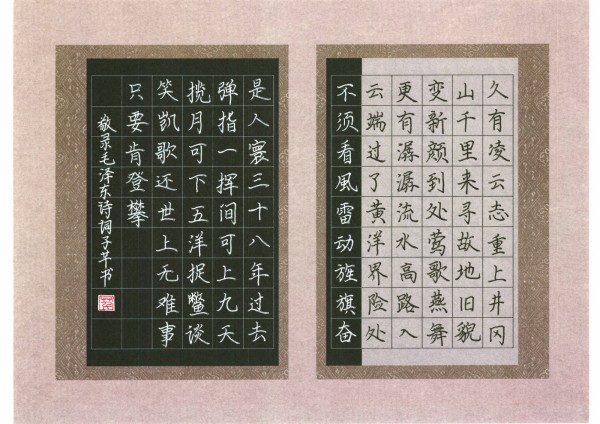 久有凌云志重上井冈
山千里来寻故地旧貌
变新颜到处莺歌燕舞
更有潺潺流水高路入
云端过了黄洋界险处
不须看風雷动旌旗奋
是人寰三十八年过去
弹指一挥间可上九天
揽月可下五洋捉鳖谈
笑凯歌还世上无难事
只要肯登攀
敬录毛泽东诗词子书